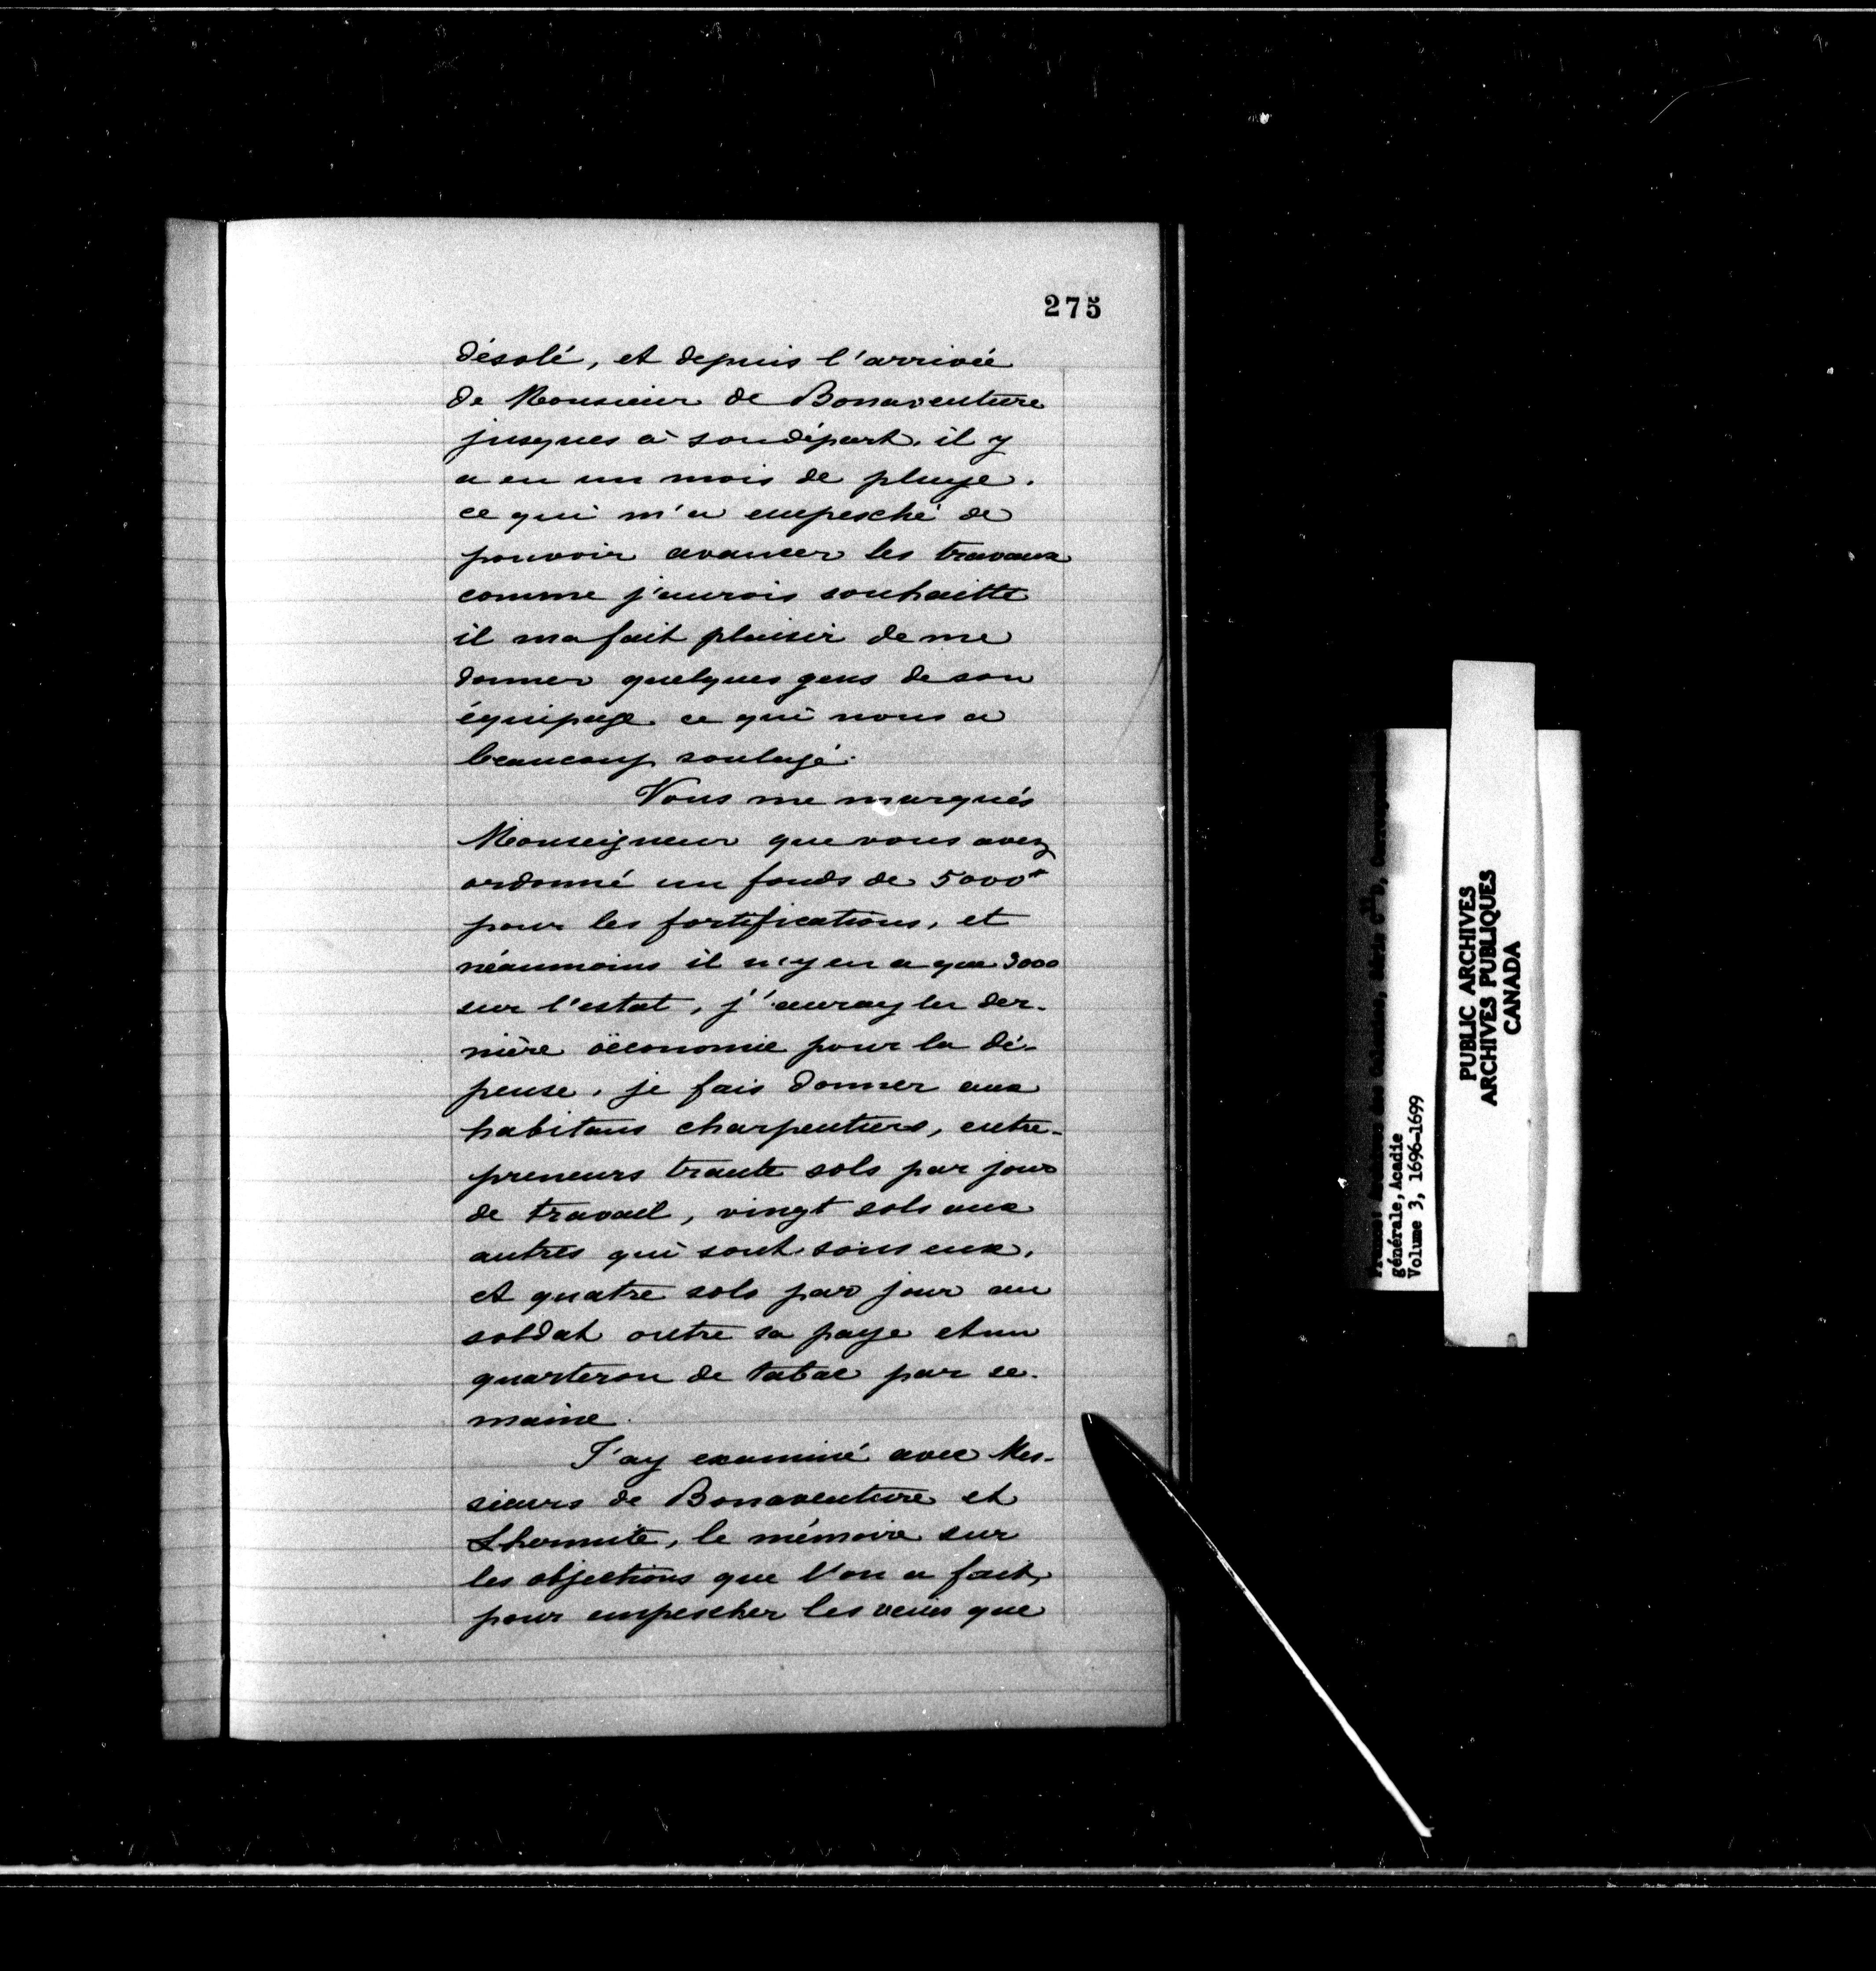 275
désolé, et depuis l'arrivée
de Monsieur de Bonaventure
jusques à son départ, il y
a eu un mois de pluye.
ce qui m'a empesché de
pouvoir avancer les travaux
comme j'aurois souhaitté
il ma fait plaisir de me
donner quelques gens de son
équipage ce qui nous a
beaucoup soulagé.
Vous me marqués
Monseigneur que vous avez
ordonné un fonds de 5000
pour les fortifications, et
néaumoins il n'y en a que 3000
sur l'estat, j'auray la der-
nière oëconomie pour la dé-
pense, je fais donner aux
habitans charpentiers, entre-
preneurs trante sols par jour
de travail, vingt sols aux
autres qui sont sous eux,
et quatre sols par jour au
soldat outre sa paye et un
quarteron de tabac par se-
maine.
J'ay examiné avec Mes-
sieurs de Bonaventure et
Lhermite, le mémoire sur
les objections que l'on a fait,
pour empescher les veües que
générale, Acadie
Volume 3, 1696-1699
PUBLIC ARCHIVES
ARCHIVES PUBLIQUES
CANADA